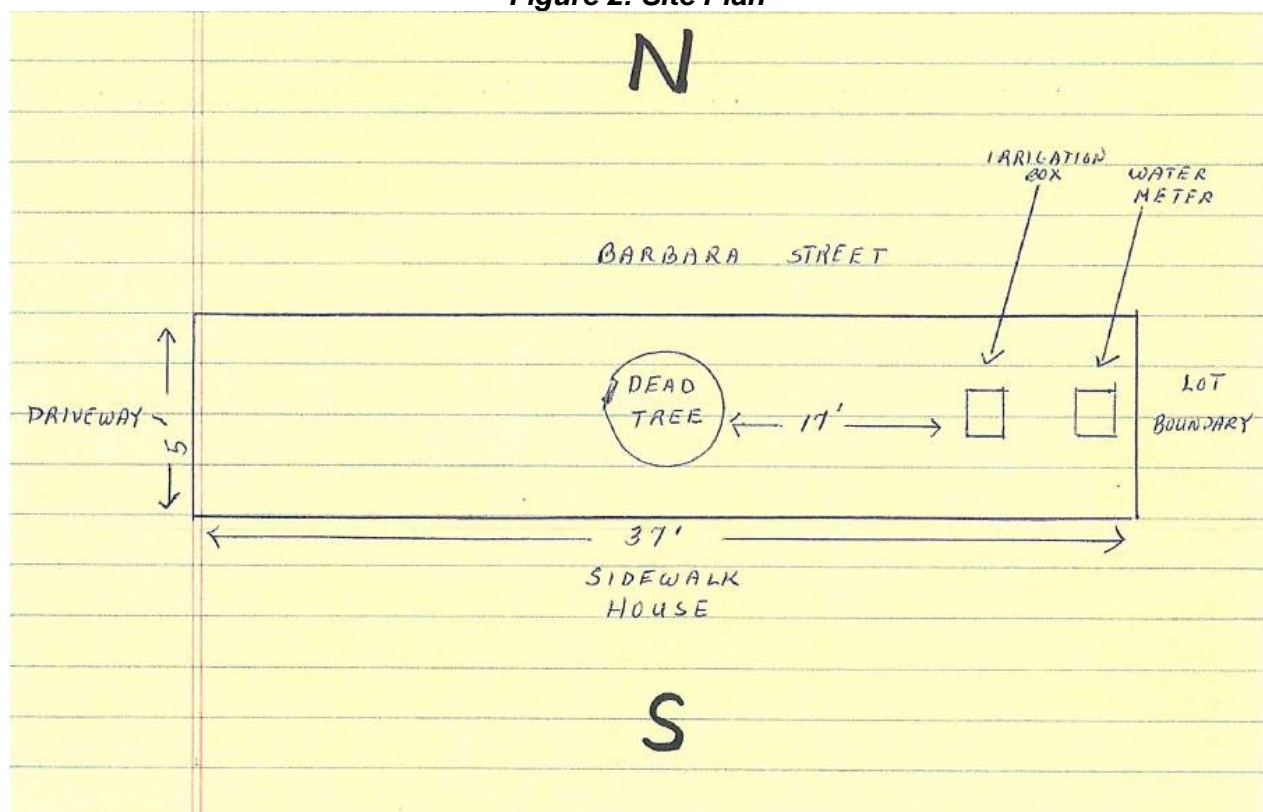 Figure 2. Site Plan
N
IRRIGATION
BOX
WATER
METER
BARBARA STREET
DEAD
TREE
17'
LOT
BOUNDARY
DRIVEWAY
5
37'
SIDEWALK
HOUSE
S